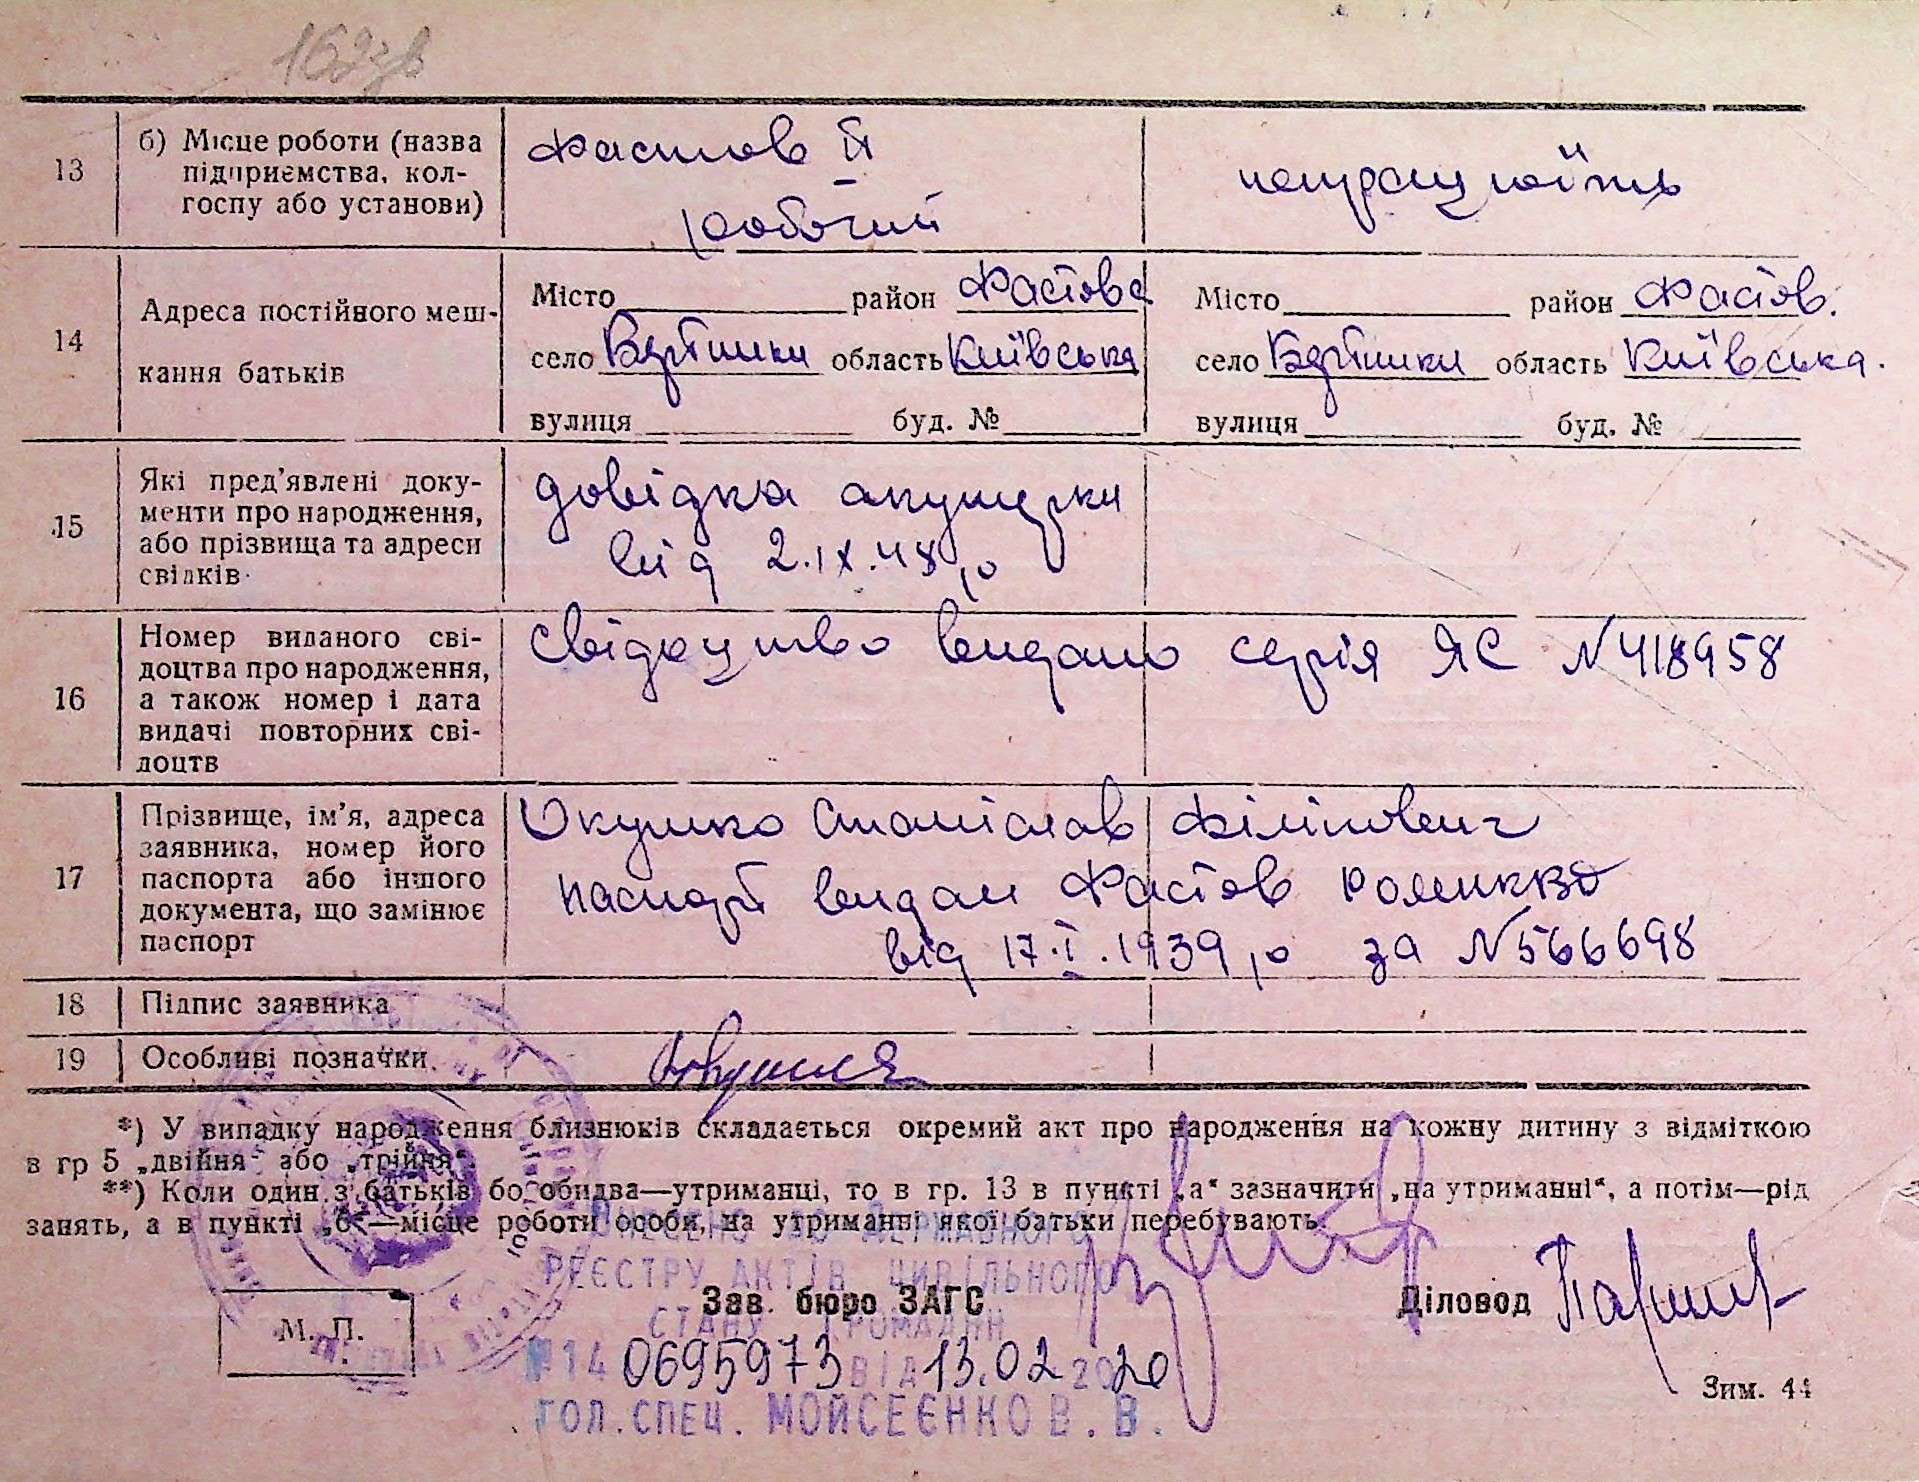 162зв
13 б) Місце роботи (назва підприємства, кол-госпу або установи)
Фастов ІІ
робочий
непрацюйть
14 Адреса постійного меш-кання батьків
Місто район Фастовс
село Бертники область Київська
вулиця буд. №
Місто район Фастов.
село Бертники область Київська.
вулиця буд. №
15 Які пред’явлені доку-менти про народження, або прізвища та адреси свідків
довідка акушерки
від 2.IX.48 р
16 Номер виданого сві-доцтва про народження, а також номер і дата видачі повторних сві-доцтв
Свідоцтво видано серія ЯС №418958
17 Прізвище, ім’я, адреса заявника, номер його паспорта або іншого документа, що замінює паспорт
Окушко Станіслав Філіпович
паспорт видан Фастов
від 17.I.1939 р за №566698
18 Підпис заявника
19 Особливі позначки
*) У випадку народження близнюків складається окремий акт про народження на кожну дитину з відміткою
в гр 5 „двійня“ або „трійня“.
**) Коли один з батьків бо обидва—утриманці, то в гр. 13 в пункті „а“ зазначити „на утриманні“, а потім—рід
занять, а в пункті „б“—місце роботи особи, на утриманні якої батьки перебувають.
ВНЕСЕНО ДО ДЕРЖАВНОГО
РЕЄСТРУ АКТІВ ЦИВІЛЬНОГО
Зав. бюро ЗАГС
Діловод
СТАНУ ГРОМАДЯН
М. П.
№14 0695973 ВІД 13.02 2020
Зим. 44
ГОЛ.СПЕЦ. МОЙСЕЄНКО В. В.